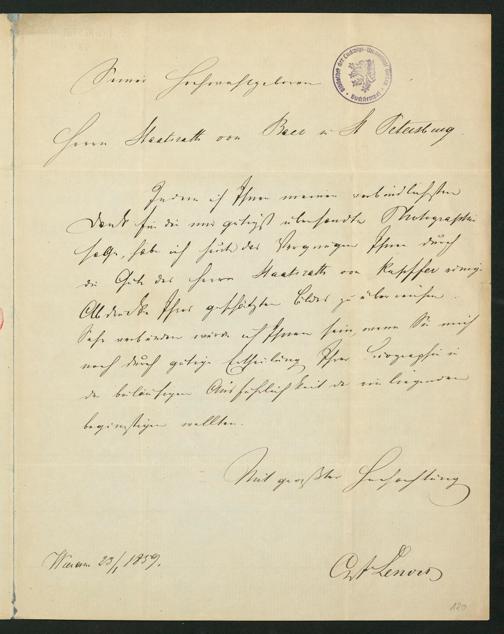 Seiner Hochwohlgeboren
Herrn Staatsrath von Baer in St Petersburg.
Indem ich Ihnen meinen verbindlichsten
Dank für die mir gütigst übersandte Photographie
sage, habe ich heute das Vergnügen Ihnen durch
die Güte des Herrn Staatsrath von Kupffer einige
Abdrücke Ihres geschätzten Bildes zu überreichen.
Sehr verbunden würde ich Ihnen sein, wenn Sie mich
noch durch gütige Ertheilung Ihrer Biographie in
der beiläufigen Ausführlichkeit der einliegenden
begünstigen wollten.
Mit größter Hochachtung
Wien 23/1 1859.
120